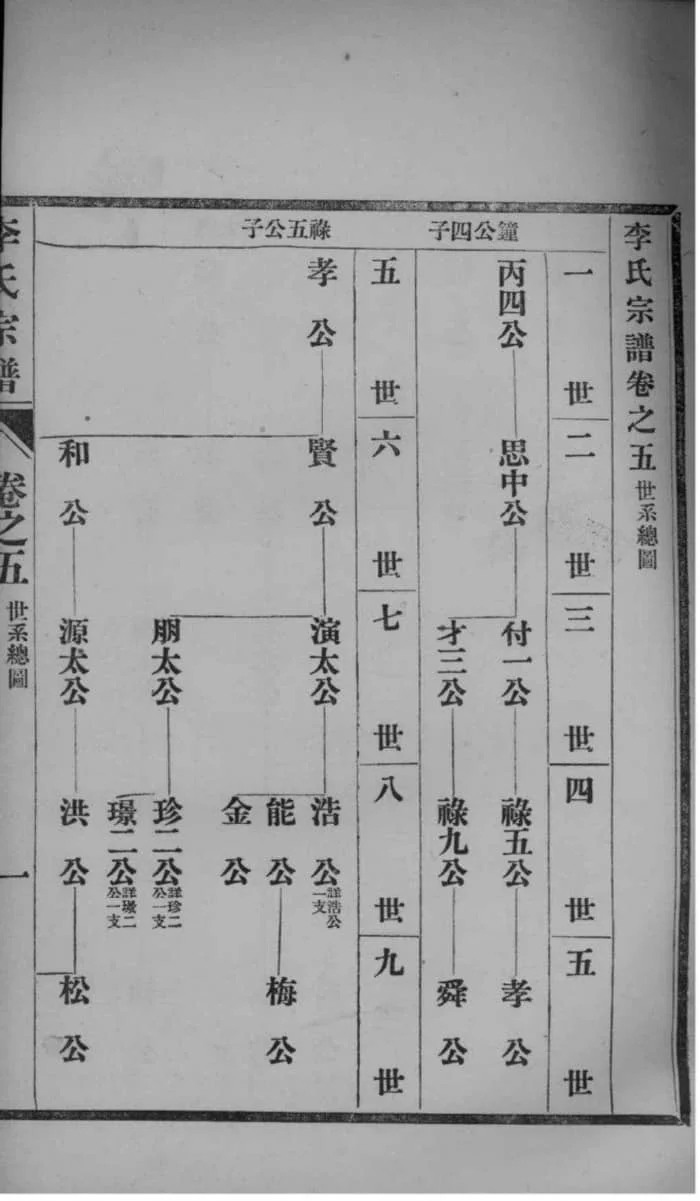 李氏宗譜卷之五 世系總圖
一世 二世 三世 四世 五世
鐘公四子
丙四公 思中公 付一公 祿五公 孝公
才三公 祿九公 舜公
五世 六世 七世 八世 九世
祿五公子
孝公 賢公 演太公 浩公 詳浩公一支
能公 梅公
金公
朋太公 珍二公 詳珍二公一支
璟二公 詳璟二公一支
和公 源太公 洪公 松公
李氏宗譜 卷之五 世系總圖 一